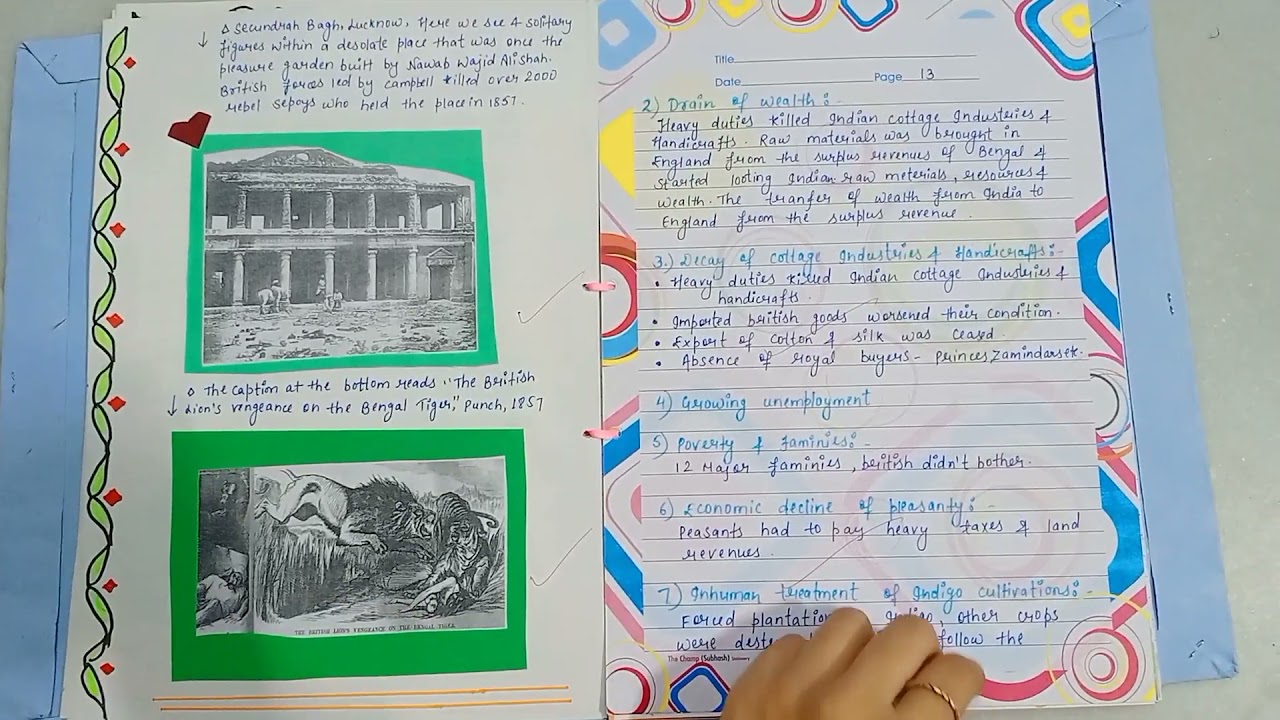 Secundrah Bagh, Lucknow. Here we see 4 solitary
figures within a desolate place that was once the
pleasure garden built by Nawab Wajid Ali Shah.
British forces led by campbell killed over 2000
rebel sepoys who held the place in 1857.
The caption at the bottom reads "The British
Lion's vengeance on the Bengal Tiger," Punch, 1857
THE BRITISH LION'S VENGEANCE ON THE BENGAL TIGER
Title
Date Page 13
2) Drain of wealth :-
Heavy duties killed Indian cottage Industries &
Handicrafts. Raw materials was brought in
England from the surplus revenues of Bengal &
started looting Indian raw meterials, resources &
wealth. The tranfer of wealth from India to
England from the surplus revenue.
3.) Decay of cottage Industries & Handicrafts:-
• Heavy duties killed Indian cottage Industries &
handicrafts.
• Imported british goods worsened their condition.
• Export of cotton & silk was ceased.
• Absence of royal buyers - princes, Zamindars etc.
4) Growing unemployment
5) Poverty & faminies:-
12 Major faminies, british didn't bother.
6) Economic decline of pleasanty:-
Peasants had to pay heavy taxes & land
revenues.
7) Inhuman treatment of Indigo cultivations:-
Forced other crops
were follow the
The Champ (Subhash) Stationery